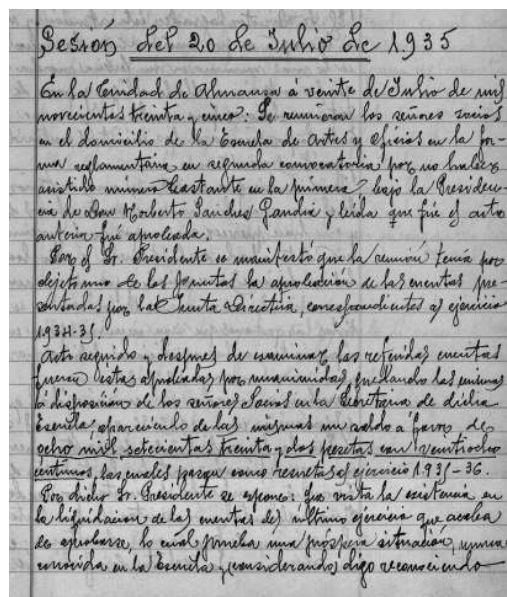 Sesión del 20 de Julio de 1935
En la Ciudad de Almansa á veinte de Julio de mil
novecientos treinta y cinco: Se reunieron los señores socios
en el domicilio de la Escuela de Artes y Oficios en la for-
ma reglamentaria en segunda convocatoria por no haber
asistido número bastante en la primera bajo la Presiden-
cia de Don Norberto Sanchez Gandia y leida que fué el acta
anterior fué aprobada.
Por el Sr. Presidente se manifestó que la reunión tenía por
objeto uno de los puntos la aprobación de las cuentas pre-
sentadas por la Junta Directiva, correspondientes al ejercicio
1934-35.
Acto seguido y despues de examinar las referidas cuentas
fueron estas aprobadas por unanimidad, quedando las mismas
á disposición de los señores Socios en la Secretaria de dicha
Escuela, apareciendo de las mismas un saldo a favor de
ocho mil, setecientas treinta y dos pesetas con veintiocho
centimos, las cuales pasan como resultas al ejercicio 1.935-36.
Por dicho Sr. Presidente se expone: que vista la existencia en
la liquidacion de las cuentas del último ejercicio que acaba
de aprobarse, lo cual prueba una próspera situación, nunca
conocida en la Escuela y (considerando) digo reconociendo